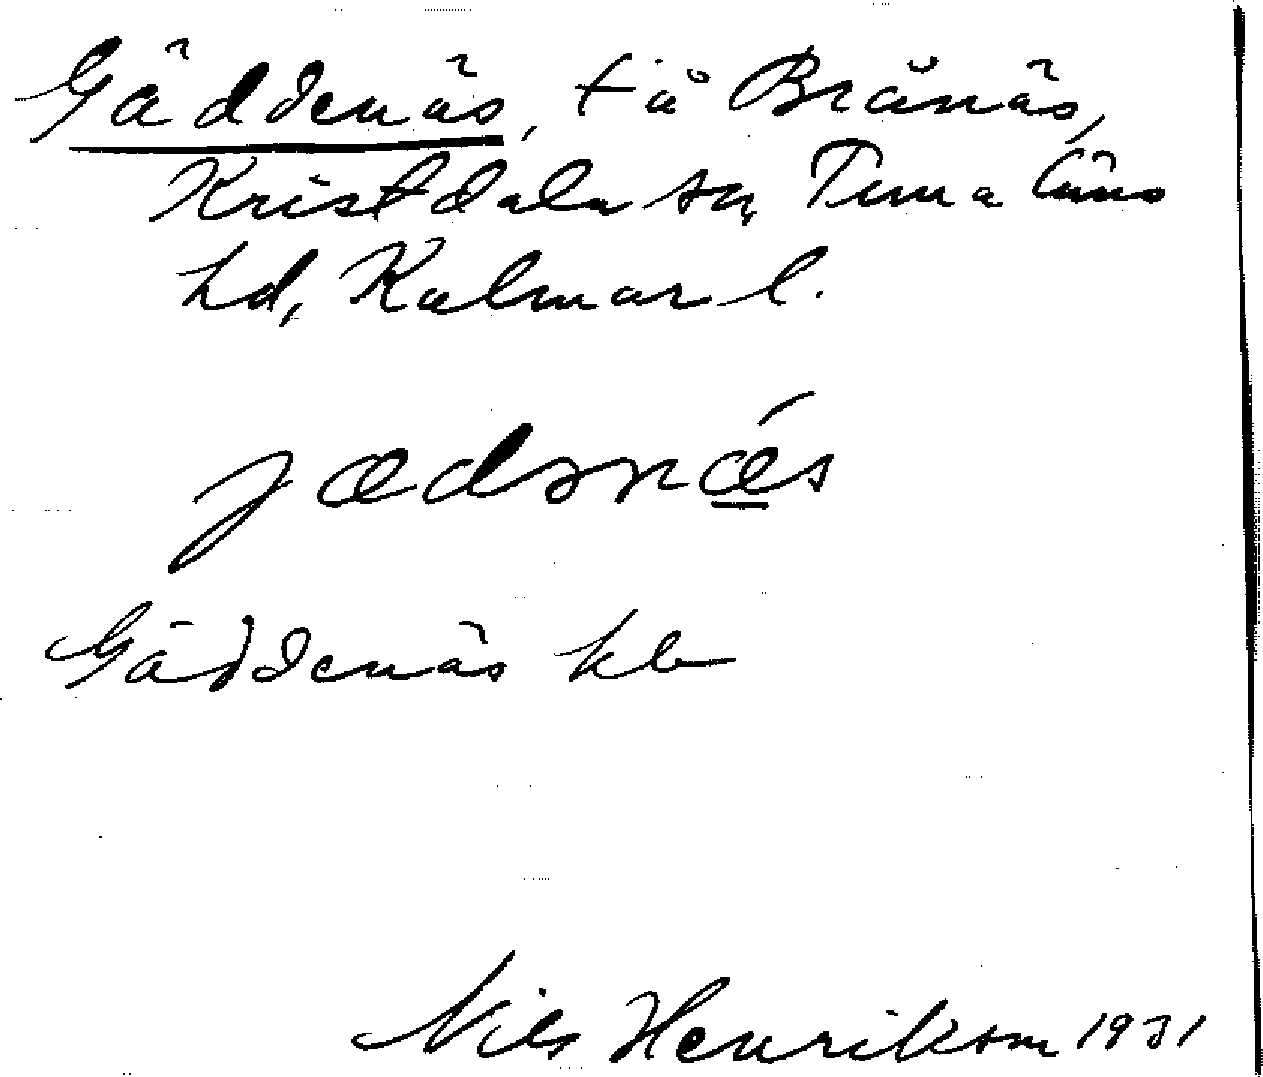 Gäddenäs, t å Brånäs,
Kristdala sn, Tunaläns
hd, Kalmar l.
jædnǽs
Gäddenäs kb
Nils Henrikson 1931